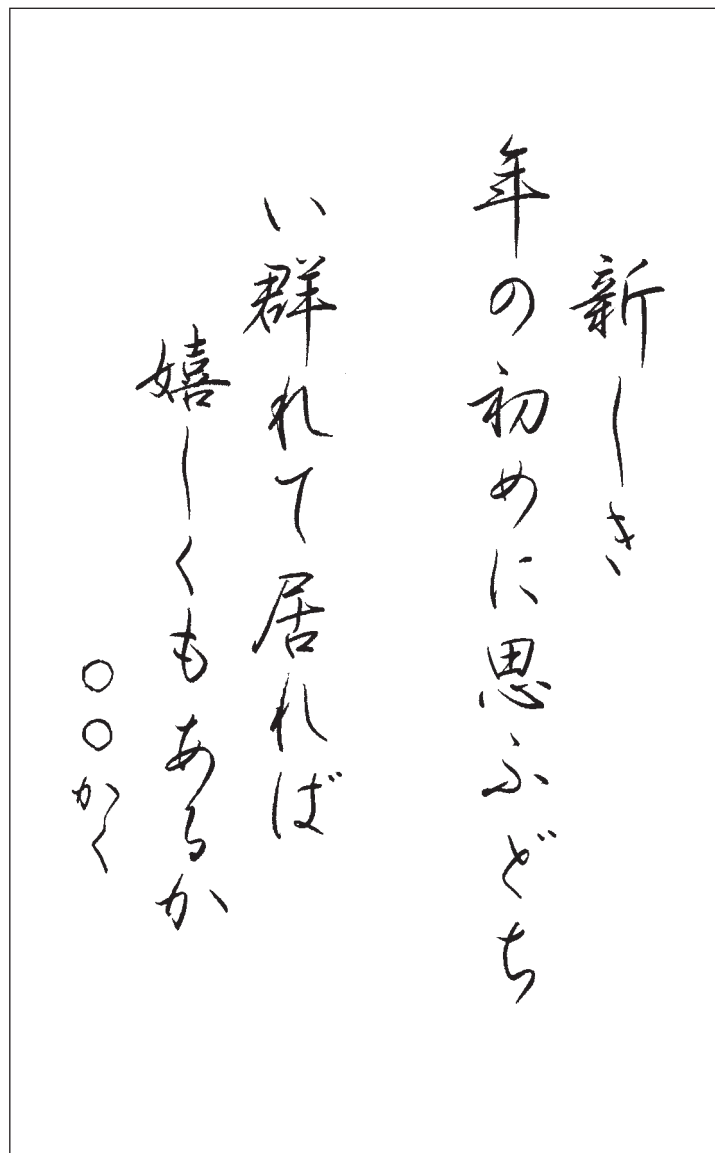 新しき
年の初めに思ふどち
い群れて居れば
嬉しくもあるか
○○かく